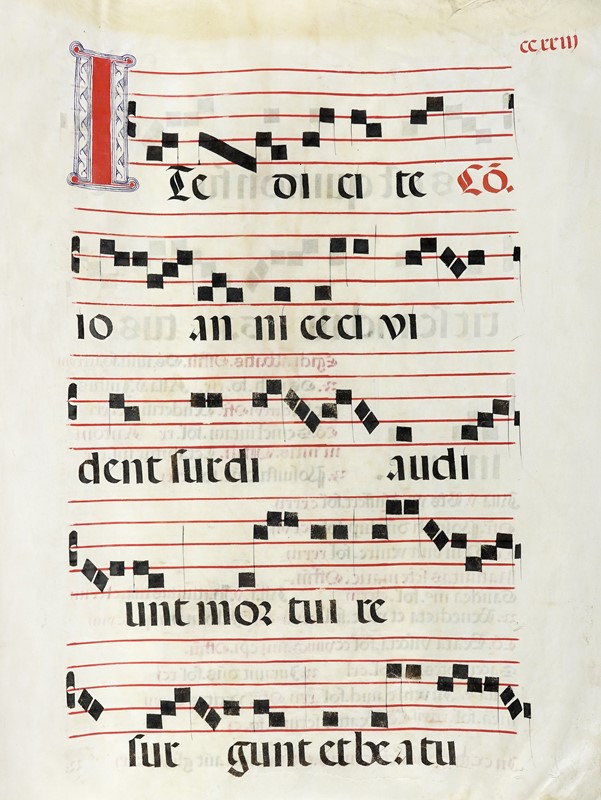 ccxxiij
ITe di ci te Cō.
io an ni ceci vi
dent surdi audi
unt mor tui re
sur gunt et be a tu